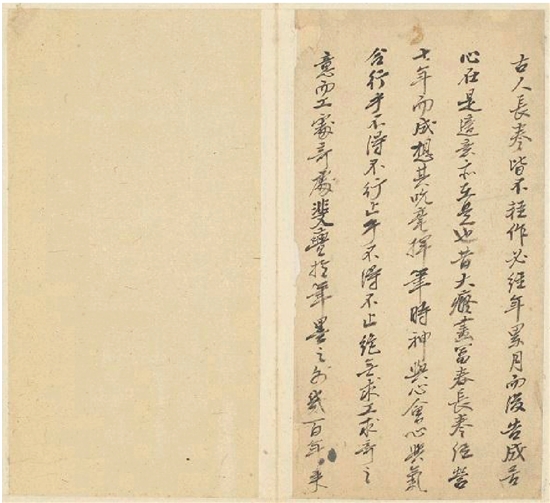 古人長卷皆不輕作必經年累月而後告成苦
心在是適意亦在是也昔大癡畫富春長卷經營
七年而成想其吮毫揮筆時神與心會心與氣
合行乎不得不行止乎不得不止絕無求工求奇之
意而工處奇處斐亹於筆墨之外幾百年來